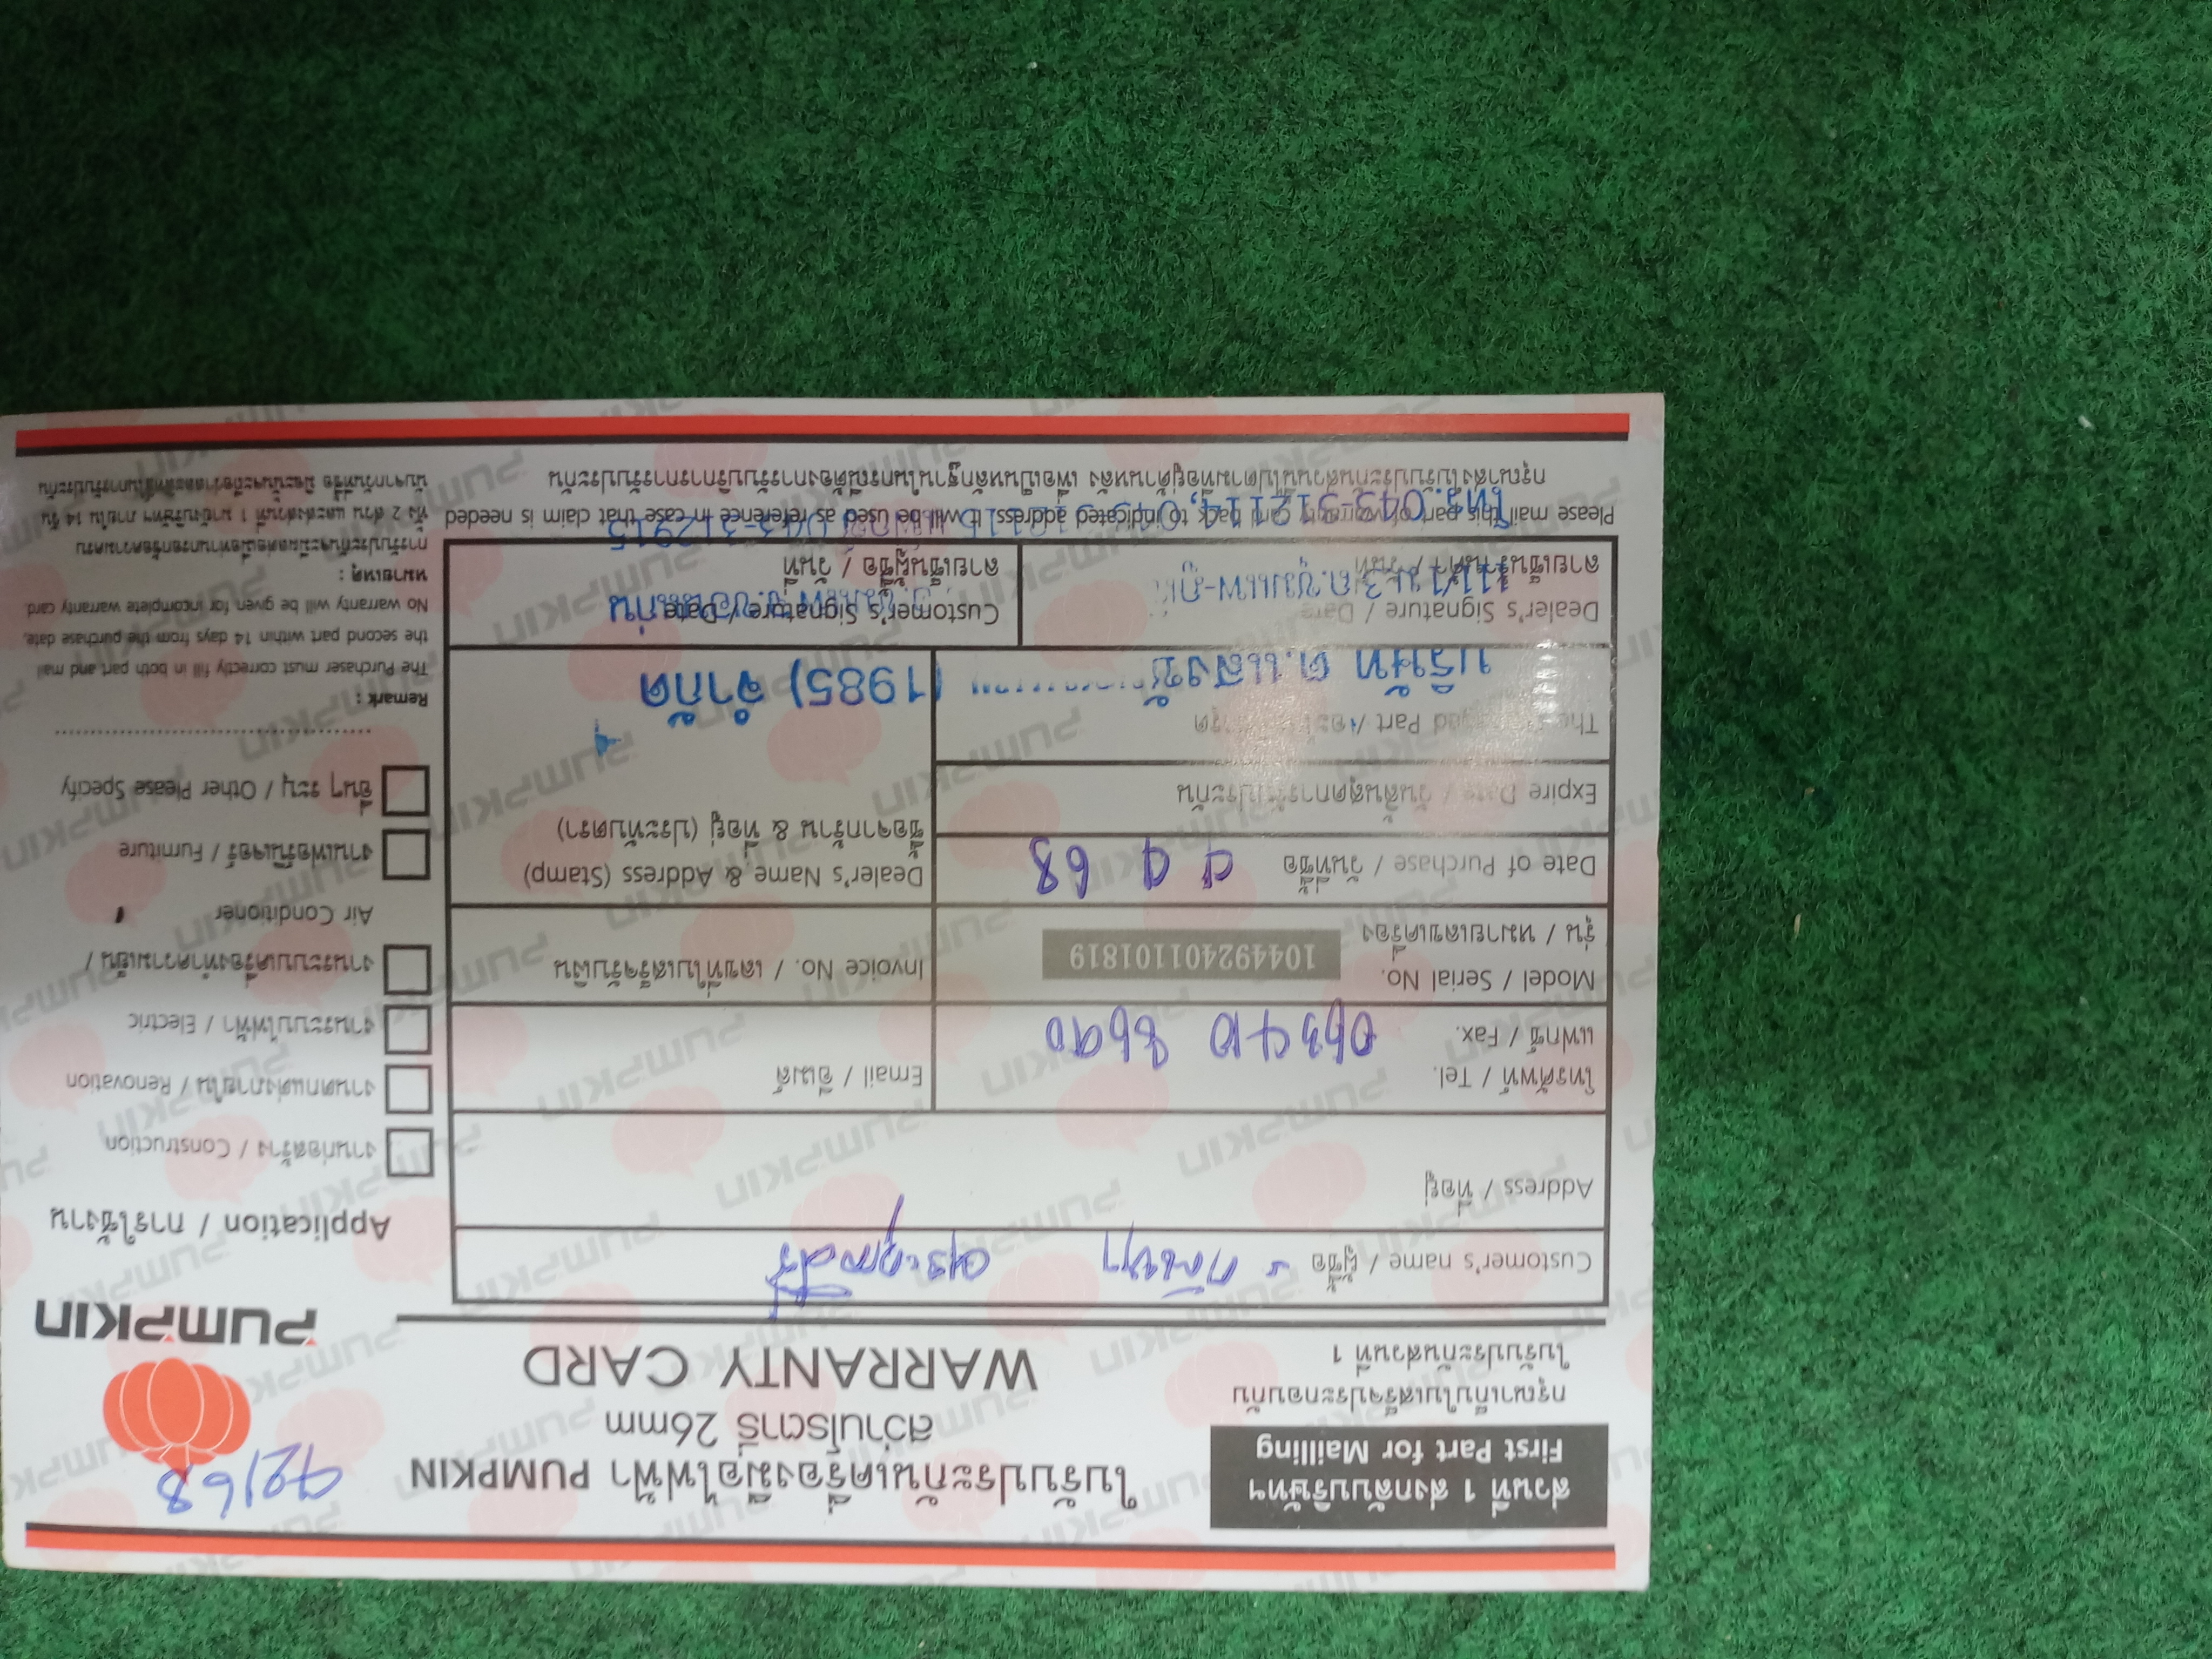 ส่วนที่ 1 ส่งกลับบริษัทฯ
First Part for Mailling
กรุณาเก็บใบเสร็จประกอบกับ
ใบรับประกันส่วนที่ 1
ใบรับประกันเครื่องมือไฟฟ้า PUMPKIN
สว่านโรตารี่ 26mm
WARRANTY CARD
PUMPKIN
Customer's name / ผู้ซื้อ
Address / ที่อยู่
โทรศัพท์ / Tel.
แฟกซ์ / Fax.
Email / อีเมล์
Model / Serial No.
รุ่น / หมายเลขเครื่อง
104492401101819
Invoice No. / เลขที่ใบเสร็จรับเงิน
Date of Purchase / วันที่ซื้อ
68
Dealer's Name & Address (Stamp)
ซื้อจากร้าน & ที่อยู่ (ประทับตรา)
Expire Date / วันสิ้นสุดการรับประกัน
บริษัท ต.แสงชั
(1985) จำกัด
Dealer's Signature / Date
ลายเซ็นร้านค้า / วันที่
Customer's Signature / Date
ลายเซ็นผู้ซื้อ / วันที่
Please mail this part of warranty card back to indicated address. It will be used as reference in case that claim is needed
กรุณาส่งใบรับประกันส่วนนี้ไปตามที่อยู่ด้านหลัง เพื่อเป็นหลักฐานในกรณีต้องการรับบริการการรับประกัน
Application / การใช้งาน
งานก่อสร้าง / Construction
งานตกแต่งภายใน / Renovation
งานระบบไฟฟ้า / Electric
งานระบบเครื่องทำความเย็น /
Air Conditioner
งานเฟอร์นิเจอร์ / Furniture
อื่นๆ ระบุ / Other Please Specify
Remark :
The Purchaser must correctly fill in both part and mail
the second part within 14 days from the purchase date.
No warranty will be given for incomplete warranty card.
หมายเหตุ :
การรับประกันจะมีผลต่อเมื่อท่านกรอกข้อความครบ
ทั้ง 2 ส่วน และส่งส่วนที่ 1 มายังบริษัทฯ ภายใน 14 วัน
นับจากวันที่ซื้อ มิฉะนั้นจะถือว่าสละสิทธิ์ในการรับประกัน